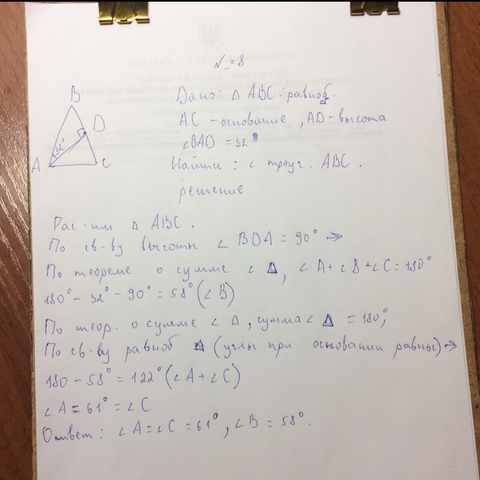 № 8
B
D
32°
A
C
Дано: Δ ABC-равноб.
AC - основание, AD-высота
∠BAD = 32°
Найти: ∠ треуг. ABC.
решение
Рас-им Δ ABC.
По св-ву высоты ∠ BDA = 90° ⇒
По теореме о сумме ∠ Δ, ∠A+∠B+∠C=180°
180° - 32° - 90° = 58° (∠B)
По теор. о сумме ∠ Δ, сумма ∠ Δ = 180°,
По св-ву равноб Δ (углы при основании равны) →
180 - 58° = 122° (∠A + ∠C)
∠A = 61° = ∠C
Ответ: ∠A = ∠C = 61°, ∠B = 58°.